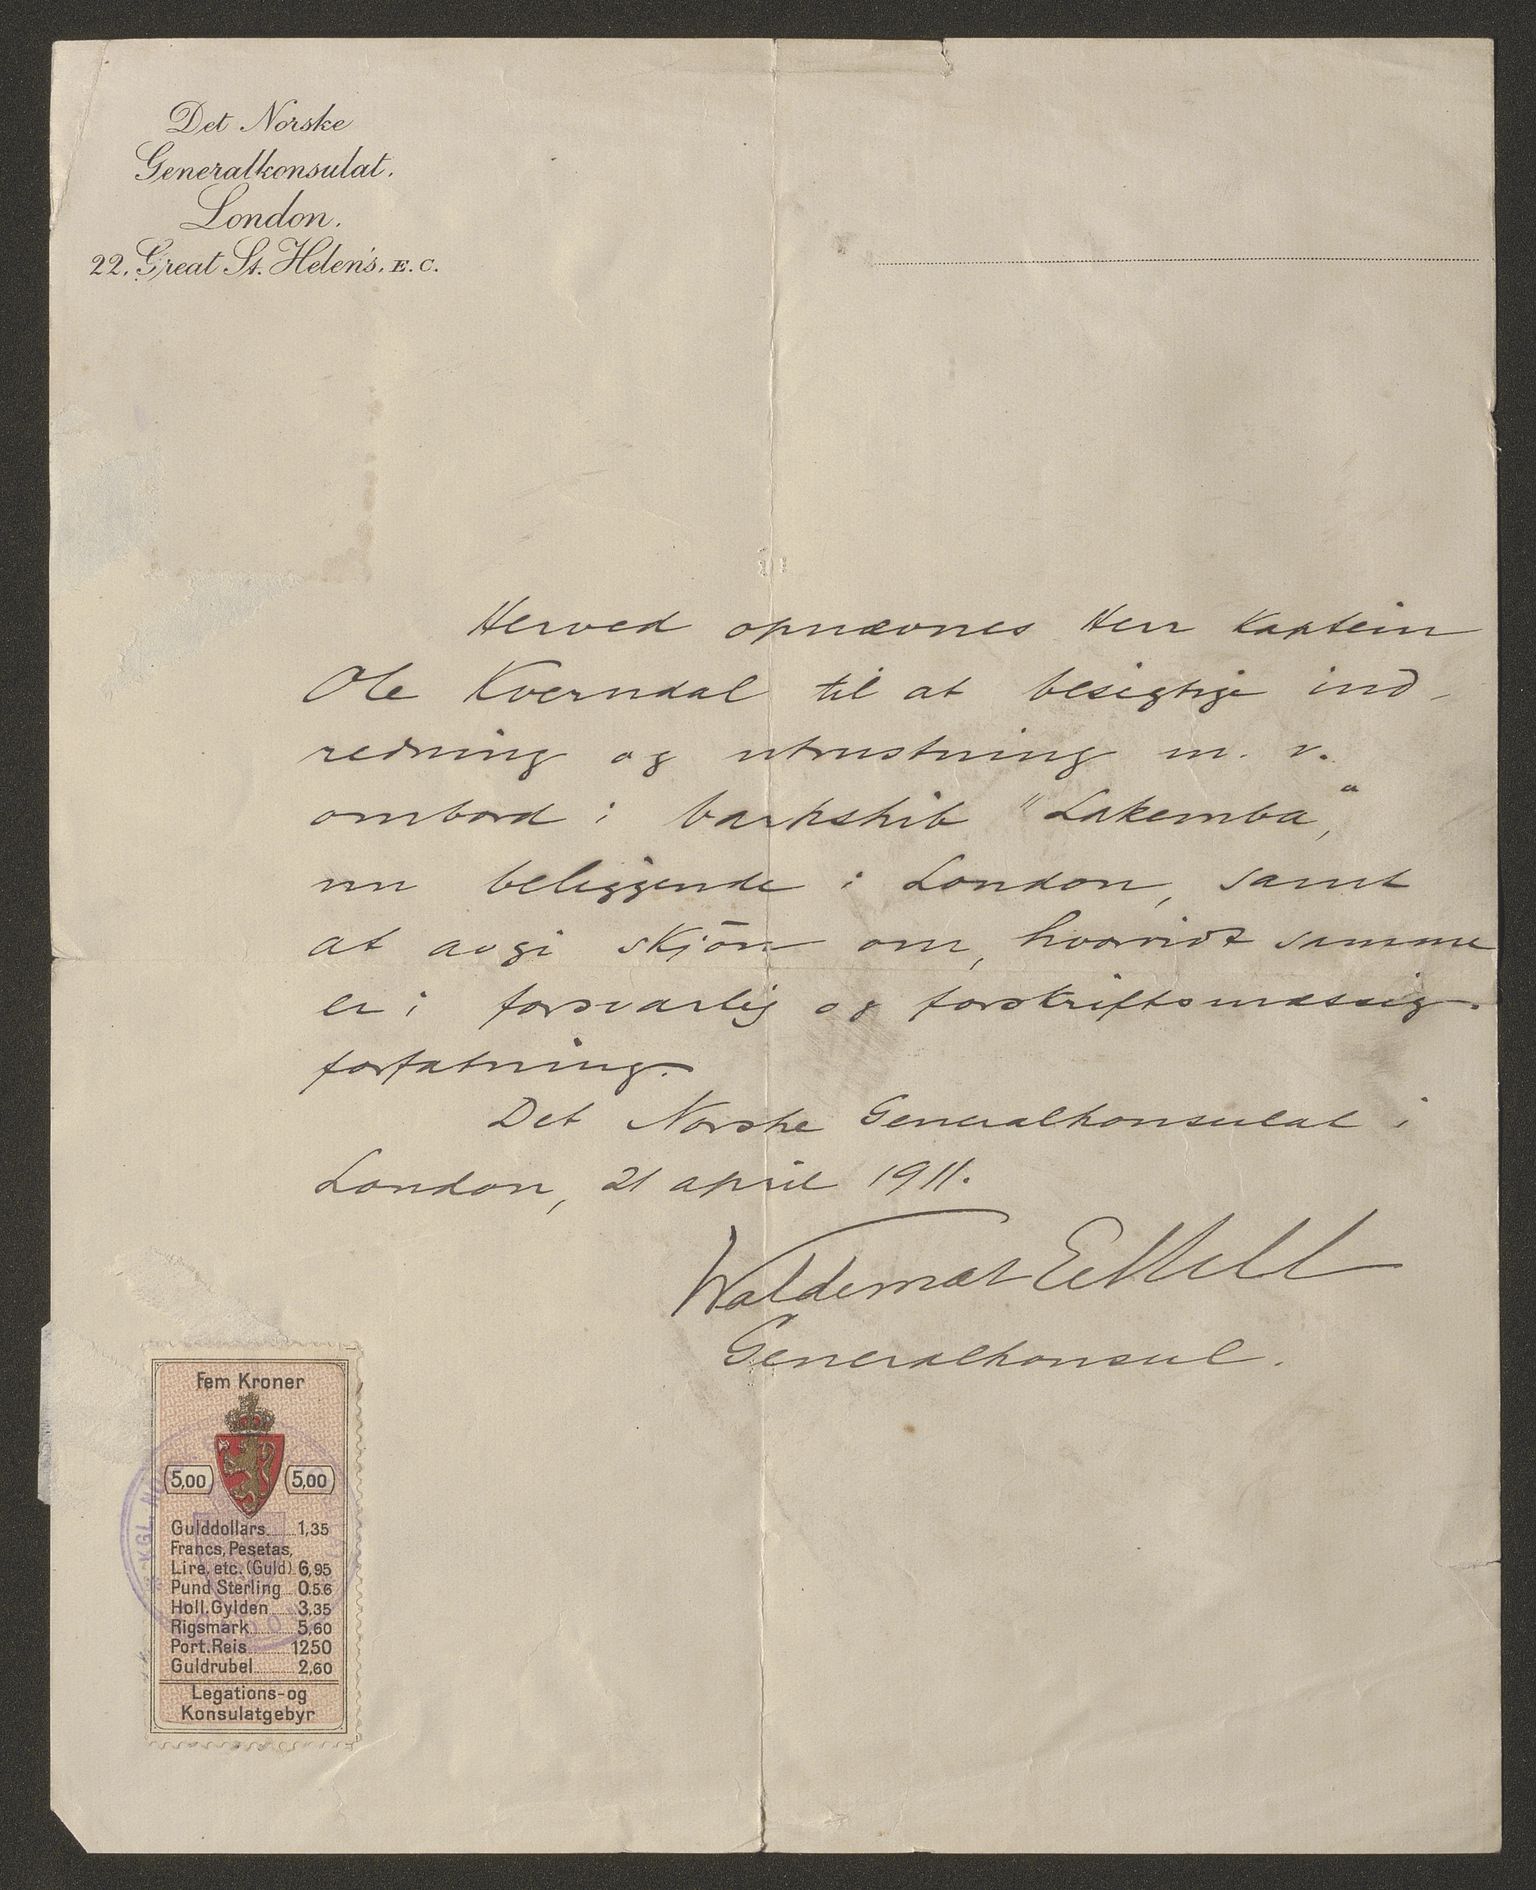 Det Norske
Generalkonsulat.
London.
22, Great St. Helen's, E.C.
Herved opnævnes Herr Kaptein
Ole Kverndal til at besigtige ind-
redning og utrustning m. v.
ombord i barkskib "Lakemba",
nu beliggende i London, samt
at avgi skjön om, hvorvidt samme
er i forsvarlig og forskriftsmæssig
forfatning.
Det Norske Generalkonsulat i
London, 21 april 1911.
Waldemar
Generalkonsul.
Fem Kroner
5,00 5,00
Gulddollars 1,35
Francs, Pesetas,
Lire, etc. (Guld) 6,95
Pund Sterling 0.5.6
Holl. Gylden 3,35
Rigsmark 5,60
Port. Reis 1250
Guldrubel 2,60
Legations-og
Konsulatgebyr
KGL. NO